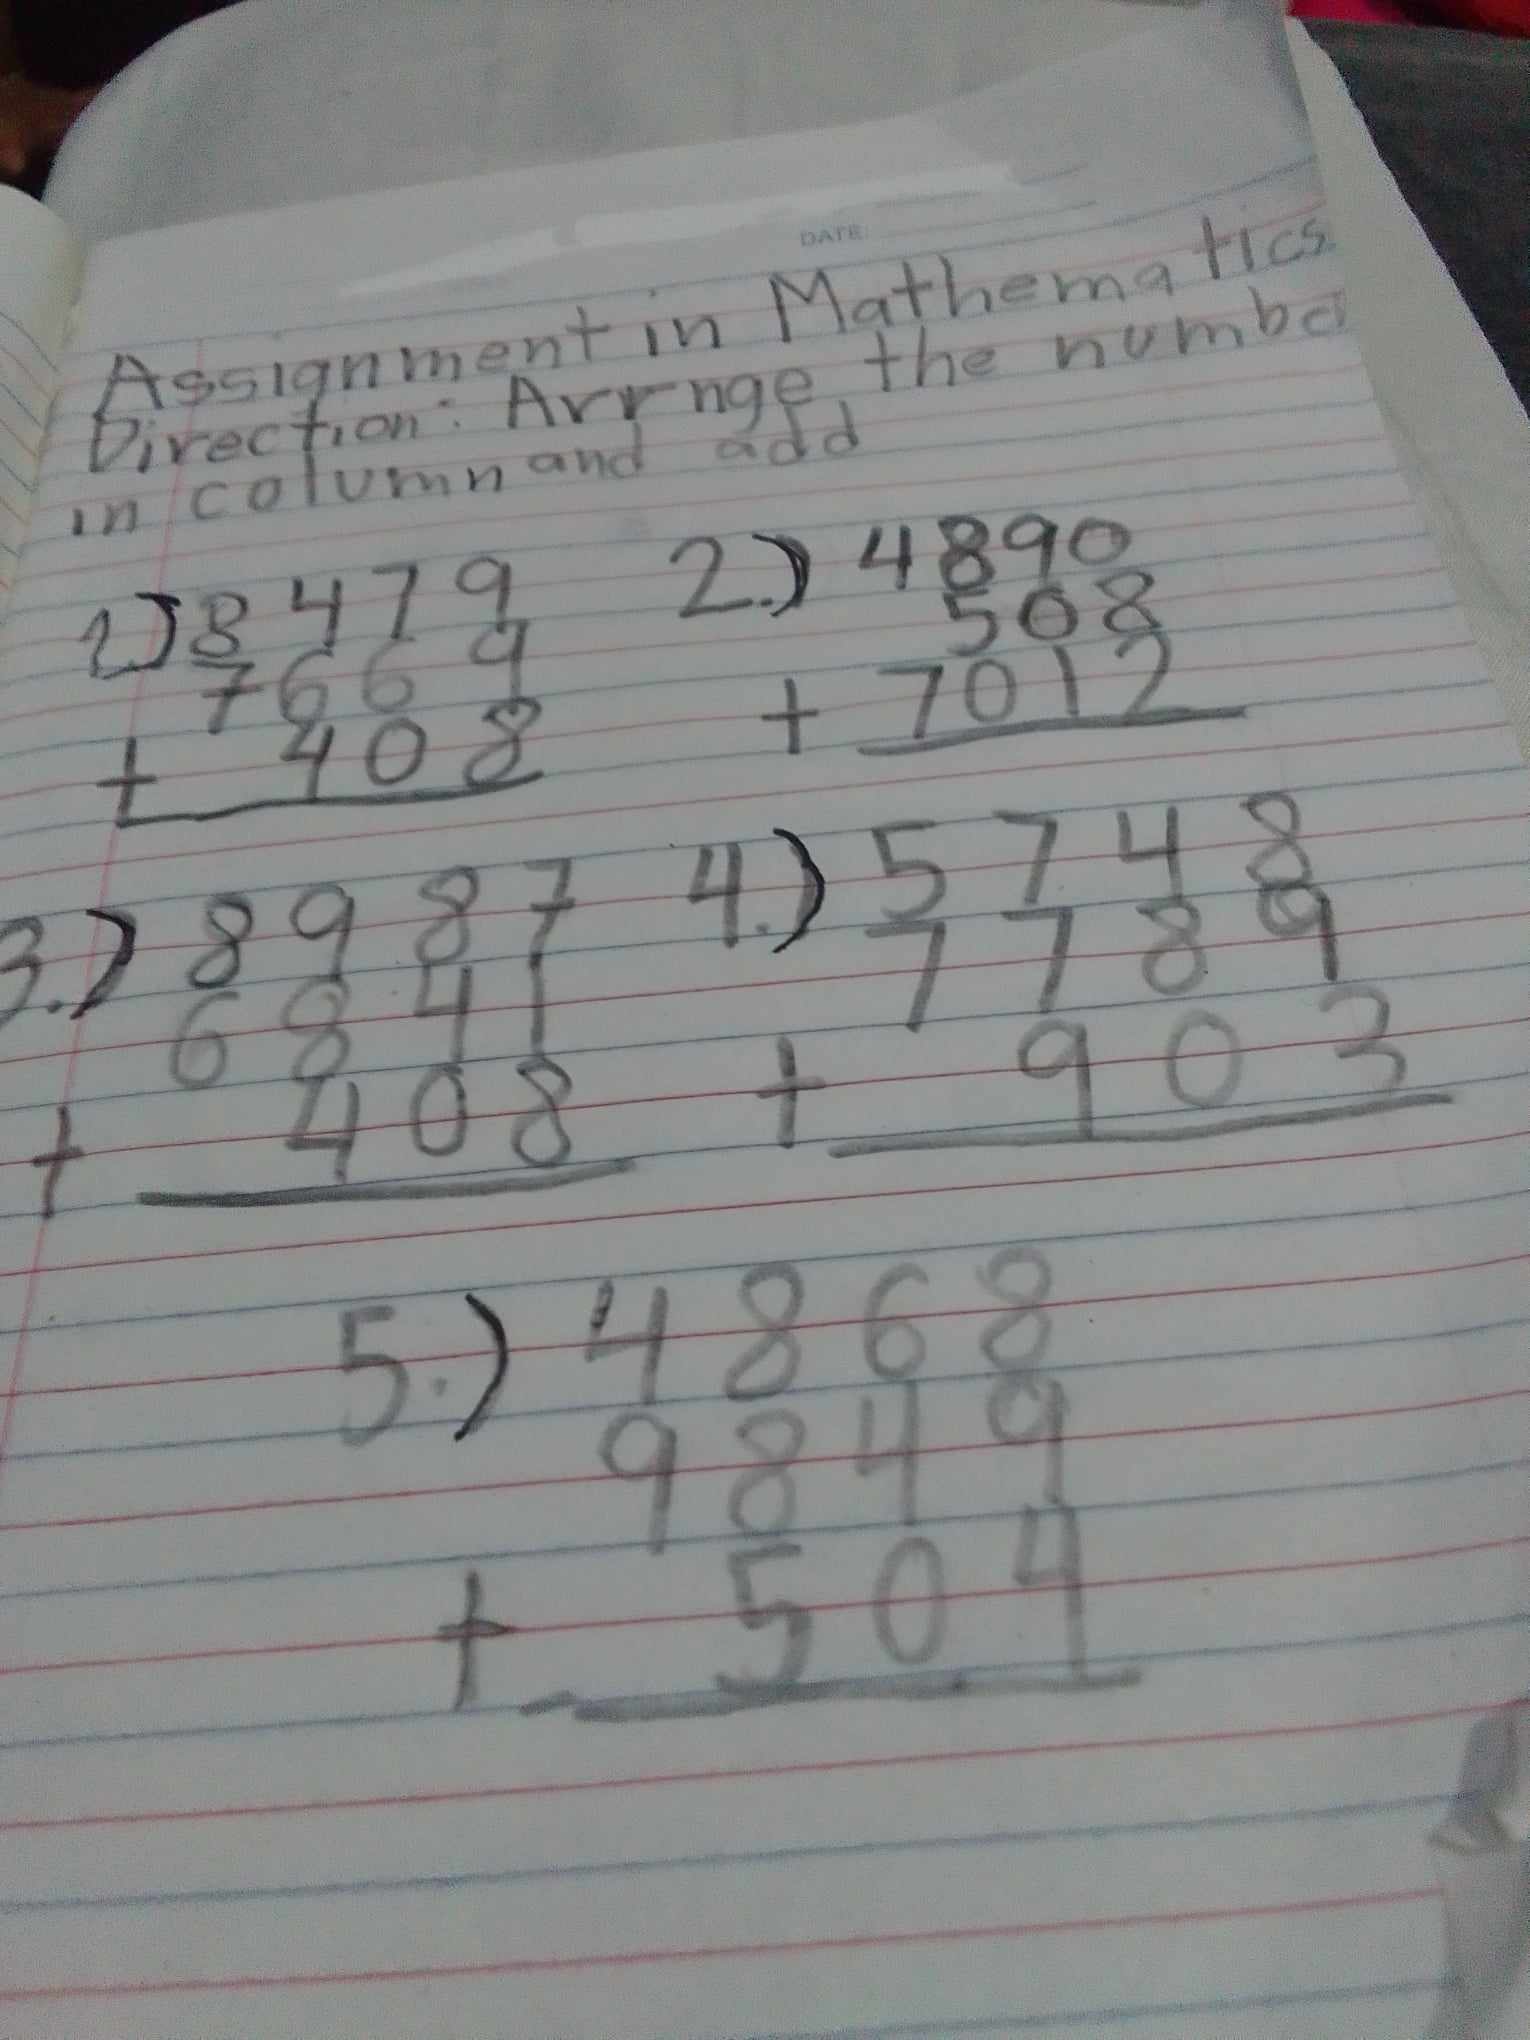 DATE:
Assignment in Mathematics
Direction: Arrnge the numbe
in column and add
1.) 8479
7669
+ 408
2.) 4890
508
+ 7012
3.) 8987
6841
+ 408
4.) 5748
7789
+ 903
5.) 4868
9849
+ 504